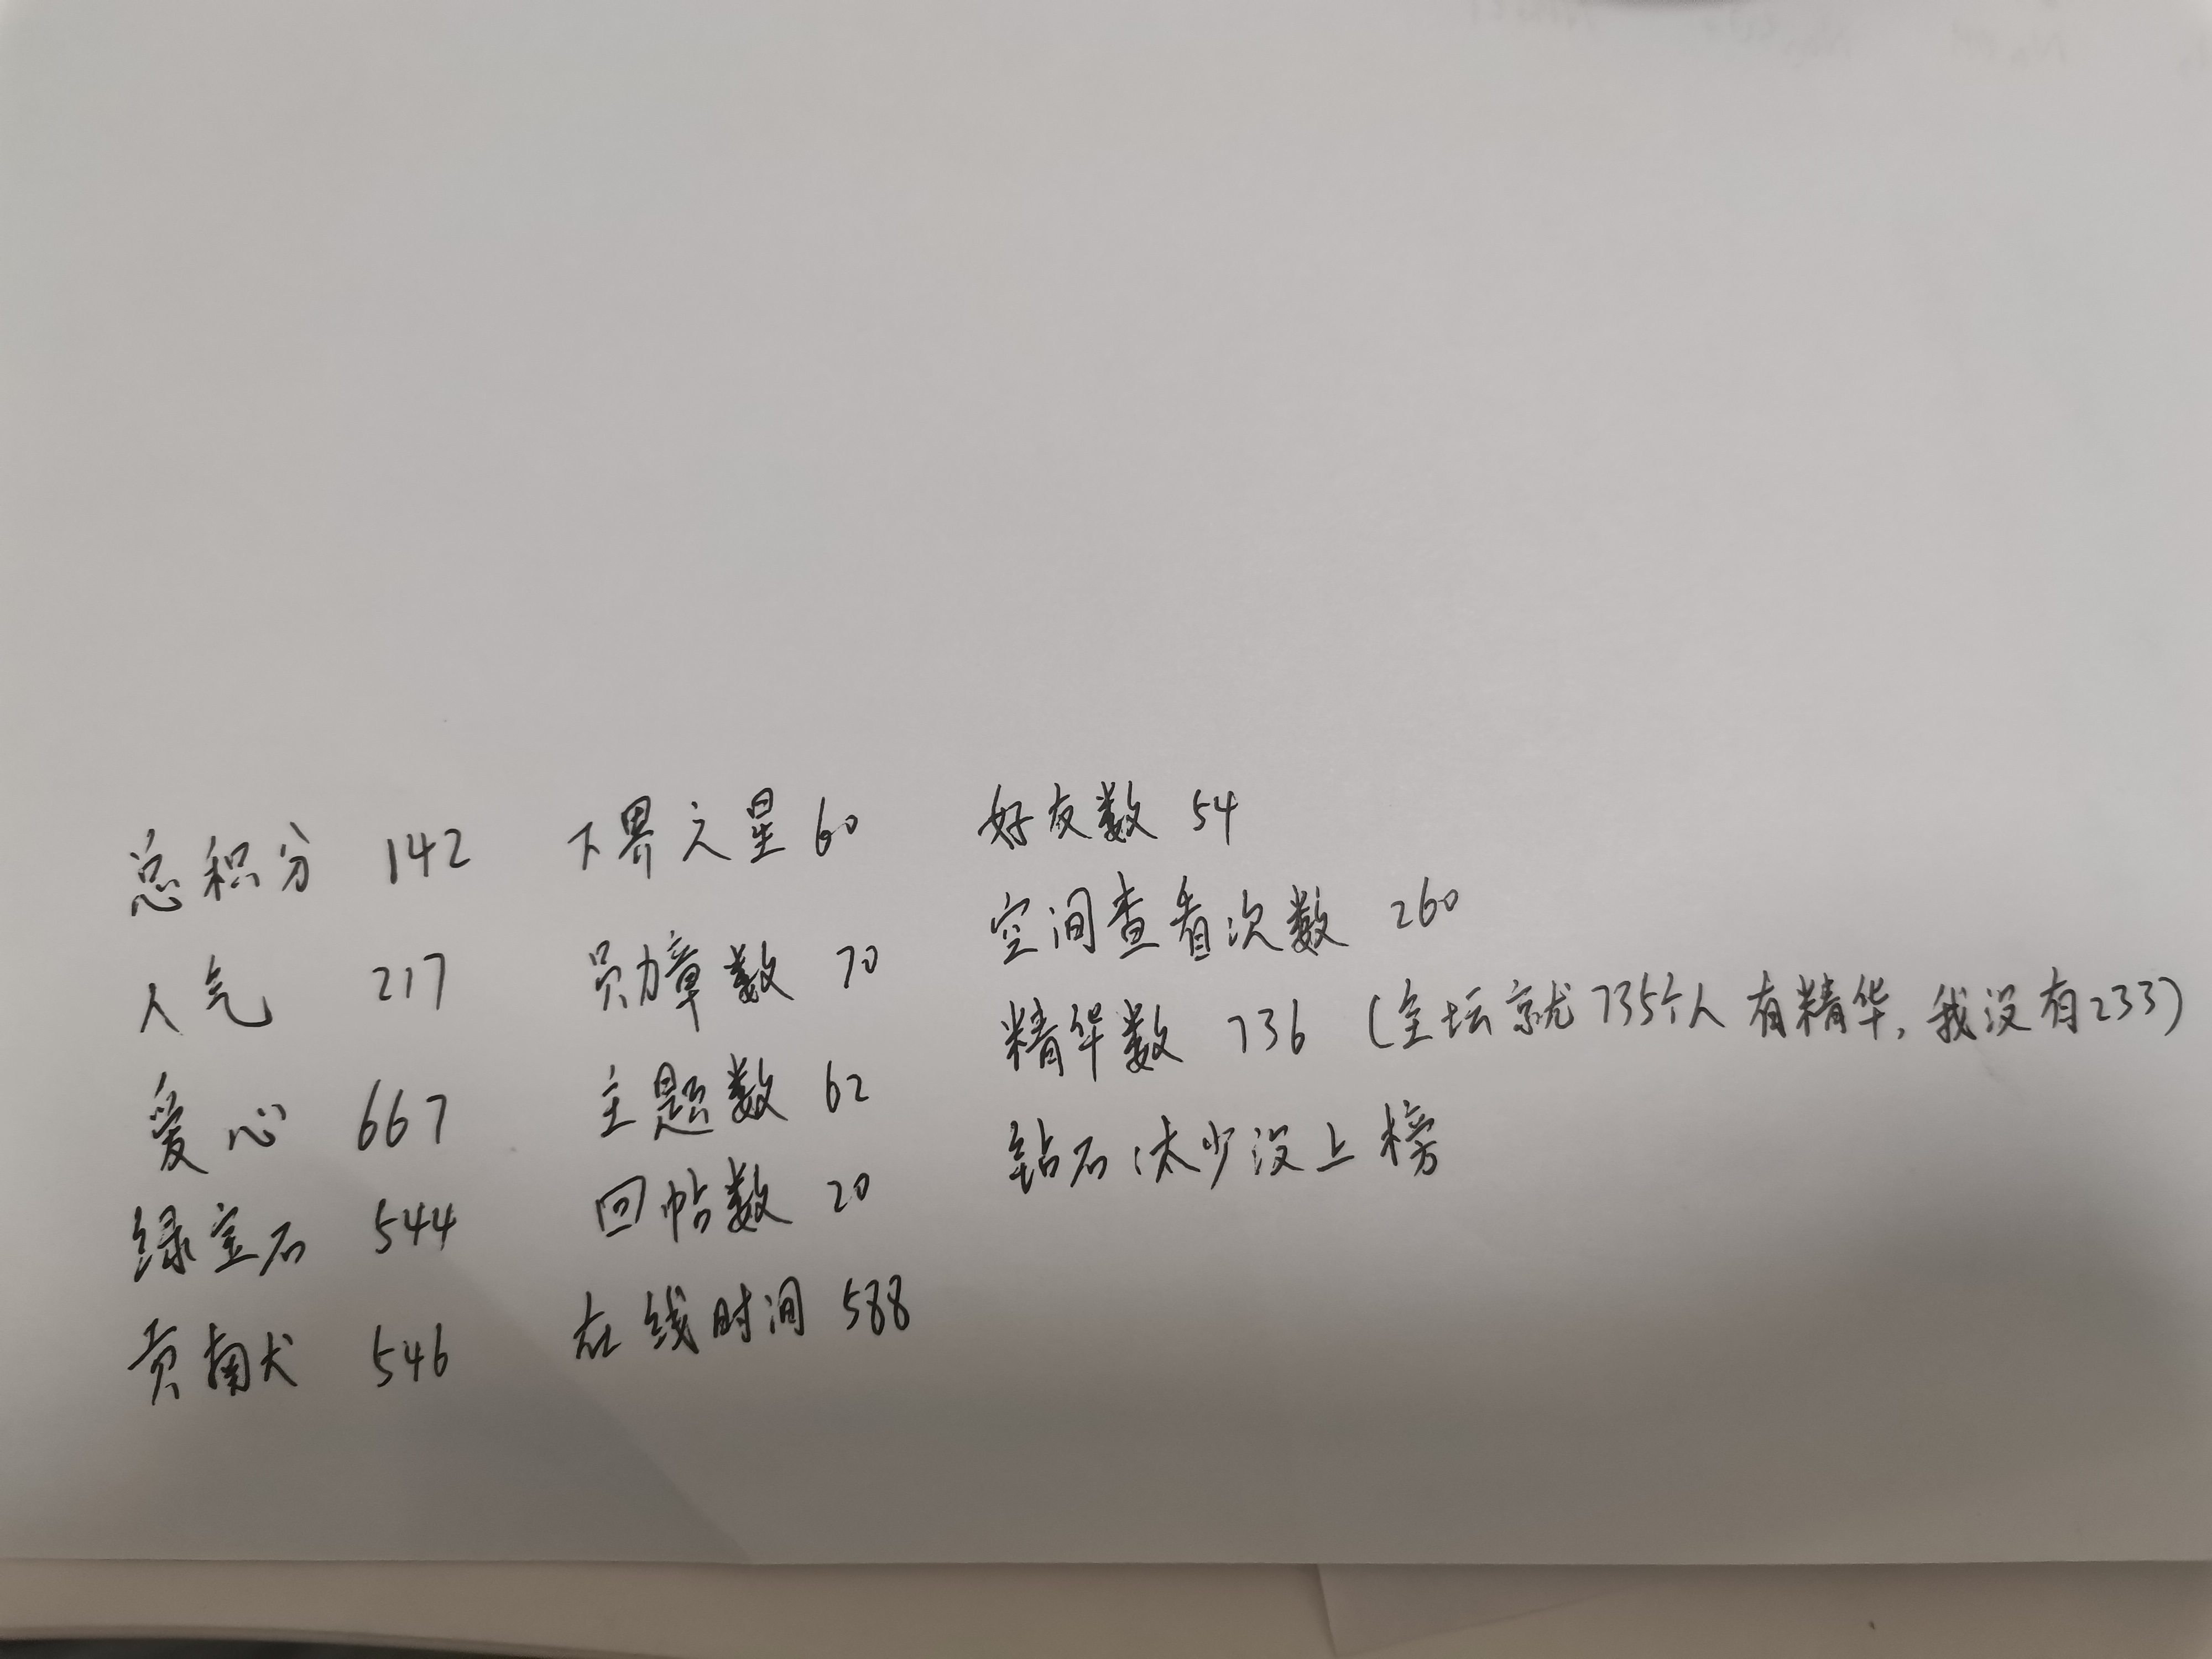 总积分 142
人气 217
爱心 667
绿宝石 544
贡献 546
下界之星 60
勋章数 70
主题数 62
回帖数 20
在线时间 588
好友数 54
空间查看次数 260
精华数 736 (全坛就735个人有精华,我没有233)
钻石:太少没上榜